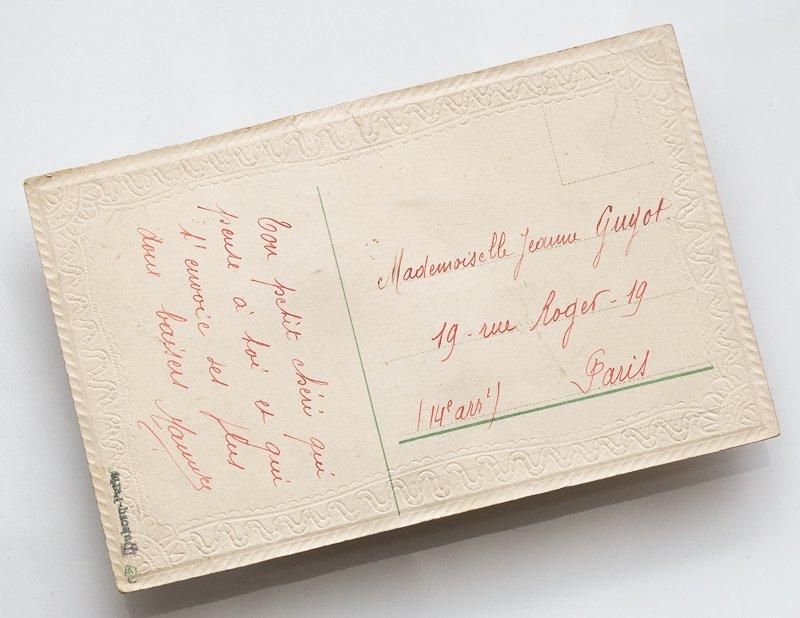 Ton petit chéri qui
pense à toi et qui
t'envoie ses plus
doux baisers
Mademoiselle Jeanne Guyot.
19 - rue Roger - 19
Paris
(14e arrt)